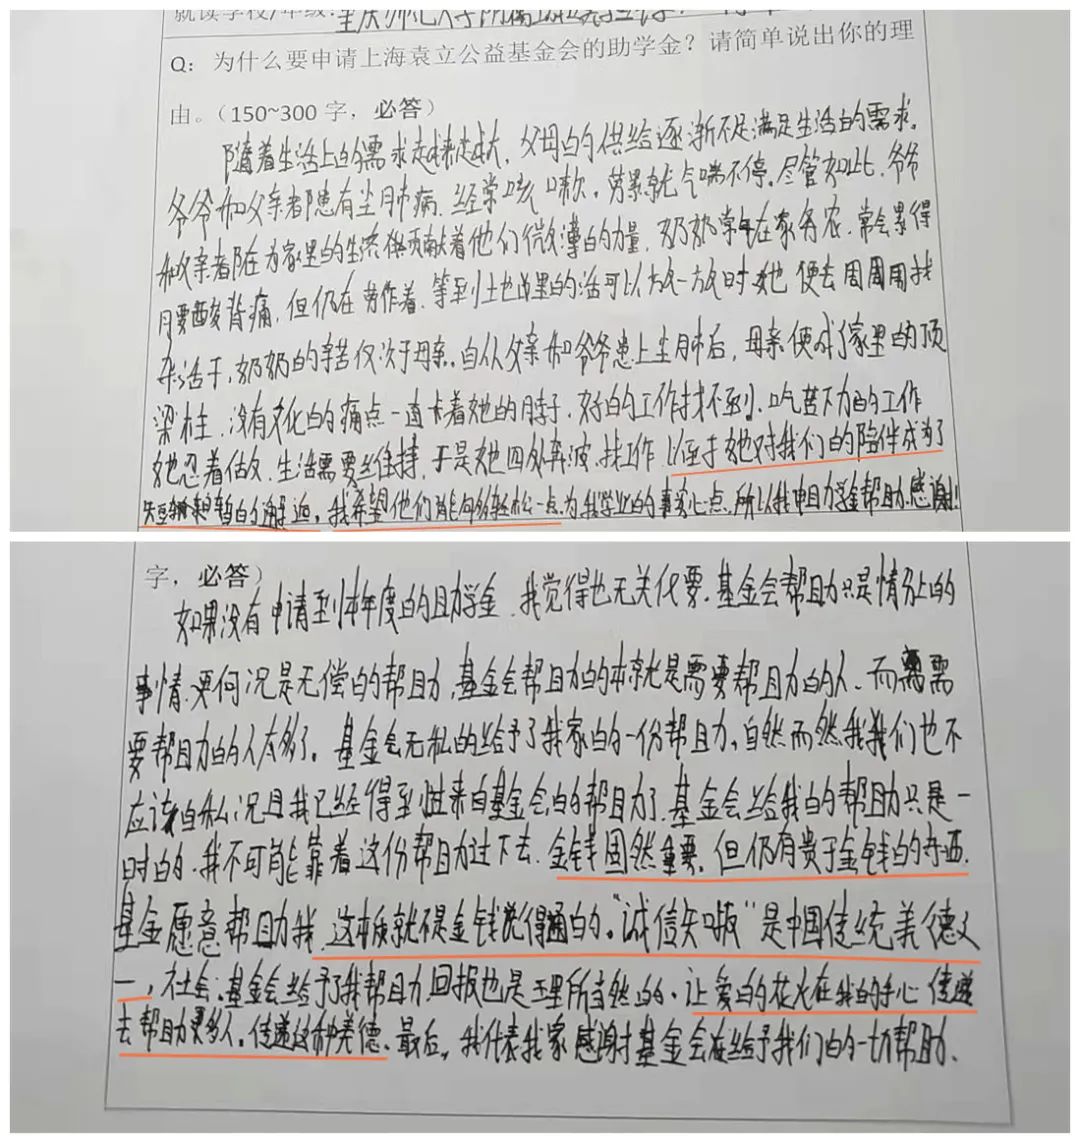 就读学校/年级:重庆师范大学附属
Q: 为什么要申请上海袁立公益基金会的助学金？请简单说出你的理
由。（150~300 字，必答）
随着生活上的需求越来越大，父母的供给逐渐不足满足生活的需求。
爷爷和父亲都患有尘肺病，经常咳嗽，劳累就气喘不停。尽管如此，爷爷
和父亲都在为家里的生活供贡献着他们微薄的力量，奶奶常年在家务农，常会累得
腰酸背痛，但仍在劳作着，等到土地里的活可以放一放时，她便去周围找
杂活干，奶奶的辛苦仅次于母亲。自从父亲和爷爷患上尘肺后，母亲便成了家里的顶
梁柱，没有文化的痛点一直卡着她的脖子，好的工作找不到，吃苦下力的工作
她忍着做，生活需要维持，于是她四处奔波，找工作，以至于她对我们的陪伴成为了
短暂的邂逅，我希望他们能够轻松一点为我学业的事少心点，所以我申助学金帮助，感谢！
字，必答）
如果没有申请到本年度的助学金，我觉得也无关紧要，基金会帮助只是情分上的
事情，更何况是无偿的帮助，基金会帮助的本就是需要帮助的人，而需
要帮助的人太多了。基金会无私的给予了我家的一份帮助，自然而然我我们也不
应该自私，况且我已经得到过来自基金会的帮助了，基金会给我的帮助只是一
时的，我不可能靠着这份帮助过下去，金钱固然重要，但仍有贵于金钱的东西，
基金愿意帮助我，这本质就不是金钱说得通的。“诚信知报”是中国传统美德之
一，在社会，基金会给予了我帮助，回报也是理所当然的，让爱的花火在我的手心传递
去帮助更多人，传递这种美德，最后，我代表我家感谢基金会在给予我们的一切帮助、